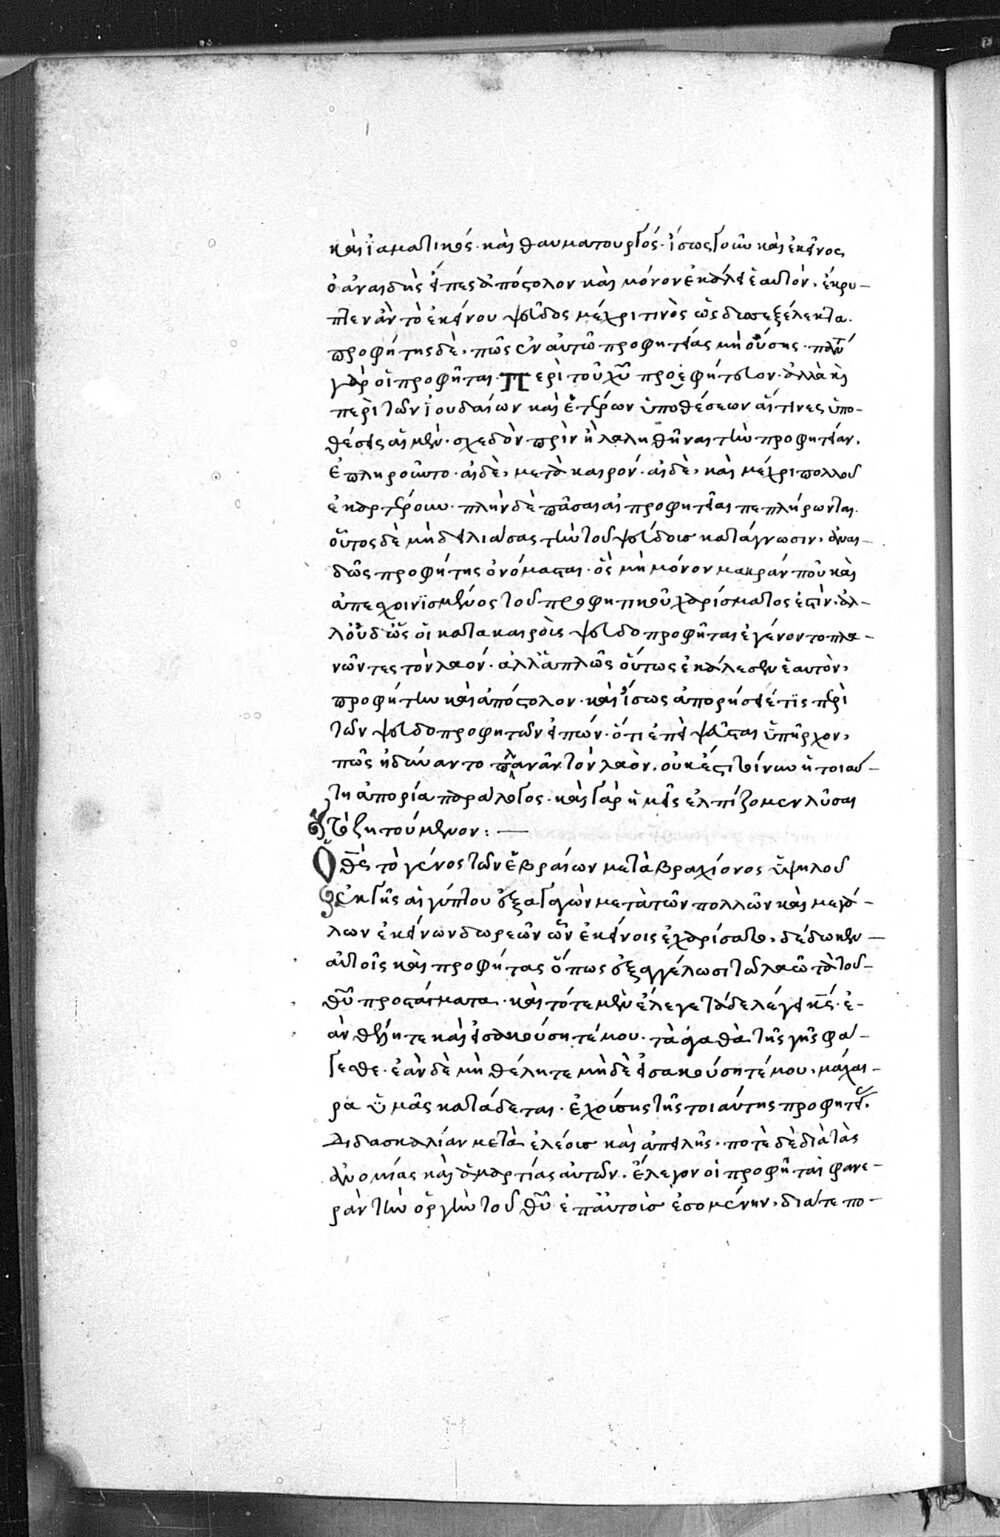 καὶ ἰαματικός· καὶ θαυματουργός· ἴσως γοῦν κἀκεῖνος
ὁ ἀναιδὴς εἴπερ ἀπόστολον καὶ μόνον ἐκάλει ἑαυτόν, ἐκρύ-
πτεν ἂν τὸ ἐκείνου ψεῦδος μέχρι τινὸς ὡς
προφήτης δὲ, πῶς ἐν αὐτῷ προφητείας μὴ οὔσης·
γὰρ οἱ προφῆται· Περὶ τοῦ χυ προεφήτευον· ἀλλὰ καὶ
περὶ τῶν ἰουδαίων καὶ ἑτέρων ὑποθέσεων αἵτινες ὑπο-
θέσεις αἱ μὲν· σχεδὸν πρὶν ἢ λαληθῆναι τὴν προφητείαν,
ἐπληροῦντο· αἱ δὲ, μετὰ καιρόν· αἱ δὲ, καὶ μέχρι πολλοῦ
ἐκαρτέρουν· πλὴν δὲ πᾶσαι αἱ προφητεῖαι πεπλήρωνται.
οὗτος δὲ μὴ δειλιάσας τὴν τοῦ ψεύδους κατάγνωσιν, ἀναι-
δῶς προφήτης ὀνόμασται· ὃς μὴ μόνον μακράν που καὶ
ἀπεσχοινισμένος τοῦ προφητικοῦ χαρίσματος ἐστίν· ἀλ-
λ' οὐδ' ὡς οἱ κατὰ καιροὺς ψευδοπροφῆται ἐγένοντο πλα-
νῶντες τὸν λαόν· ἀλλ' ἁπλῶς οὕτως ἐκάλεσεν ἑαυτὸν,
προφήτην καὶ ἀπόστολον· καὶ ἴσως ἀπορήσειέ τις περὶ
τῶν ψευδοπροφητῶν εἰπών· ὅτι ἐπεὶ ψεῦσται ὑπῆρχον,
πῶς ἠδύναντο πλανᾶν τὸν λαὸν, οὐκ ἔστι τοίνυν ἡ τοιαύ-
τη ἀπορία παράλογος· καὶ γὰρ ἡμεῖς ἐλπίζομεν λῦσαι
τὸ ζητούμενον: —
Ὁ θς τὸ γένος τῶν ἑβραίων μετὰ βραχίονος ὑψηλοῦ
ἐκ τῆς αἰγύπτου ἐξαγαγὼν μετὰ τῶν πολλῶν καὶ μεγά-
λων ἐκείνων δωρεῶν ὧν ἐκείνοις ἐχαρίσατο, δέδωκεν
αὐτοῖς καὶ προφήτας ὅπως ἐξαγγέλωσι τῷ λαῷ τὰ τοῦ
θυ προστάγματα· καὶ τότε μὲν ἔλεγε τάδε λέγει κς· ἐ-
ὰν θέλητε καὶ εἰσακούσητέ μου· τὰ ἀγαθὰ τῆς γῆς φά-
γεσθε· ἐὰν δὲ μὴ θέλητε μηδὲ εἰσακούσητέ μου, μάχαι-
ρα ὑμᾶς κατάδεται· ἐχούσης τῆς τοιαύτης προφητείας
διδασκαλίαν μετὰ ἐλέους καὶ ἀπειλῆς· ποτὲ δὲ διὰ τὰς
ἀνομίας καὶ ἁμαρτίας αὐτῶν, ἔλεγον οἱ προφῆται φανε-
ρὰν τὴν ὀργὴν τοῦ θυ ἐπ' αὐτοῖς ἐσομένην, διά τε πο-